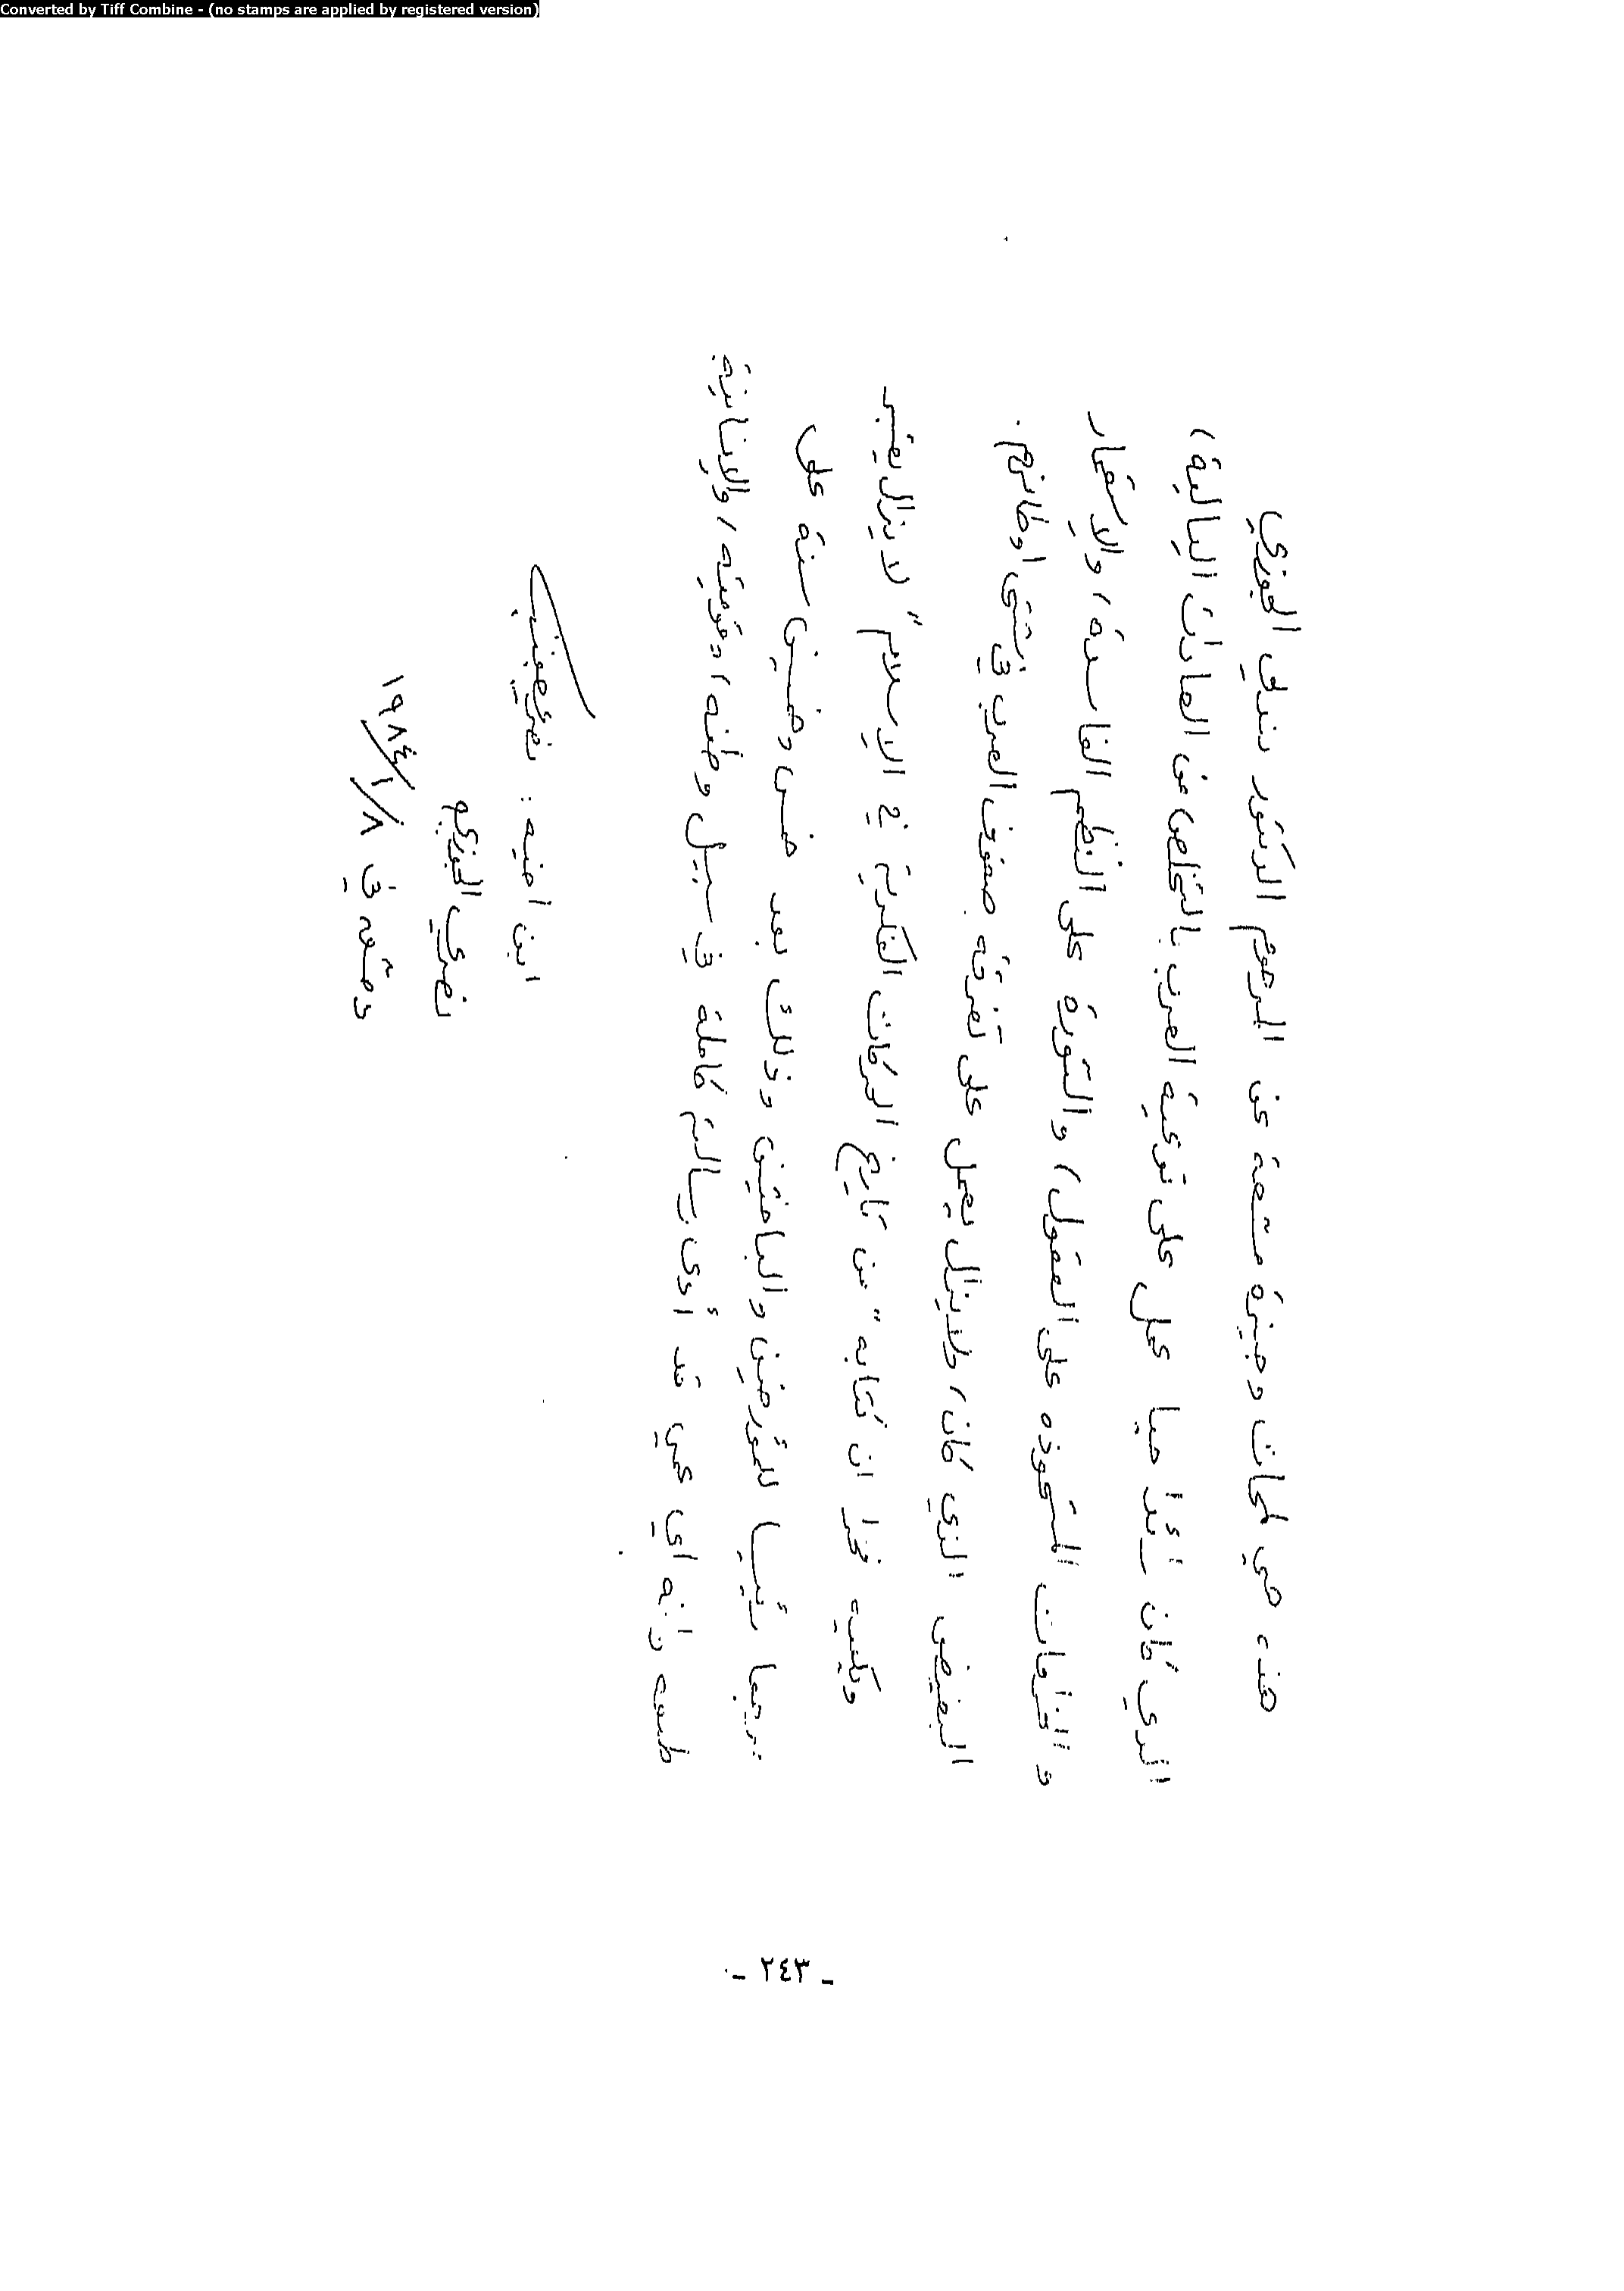 Converted by Tiff Combine - (no stamps are applied by registered version)
هذه هي لمحات وجيزة مشعة عن المرحوم الدكتور بندلي الجوزي
الذي كان رائدا حيا عمل على توعية العرب بالتخلص من العادات البالية،
و الخزافات المشعوذه على العقول، والثورة على النظم الفاسدة، والاستعمار
البغيض الذي كان، ولا يزال يعمل على تفرقة صفوف العرب في شتى اوطانهم.
ويكفيه فخرا ان كتابه "من تاريخ الحركات الفكرية في الاسلام" لا يزال يعتبر
مرجعا رئيسيا للمؤرخين والباحثين وذلك بعد خمس وخمسين سنة على
طبعه وانه اي عمي قد أدى رسالته كاملة في سبيل وطنه، وقوميته، والانسانية
ابن اخيه:
نصري الجوزي
دمشق في ١٩٨٤/١/٨
- ٢٤٣ -